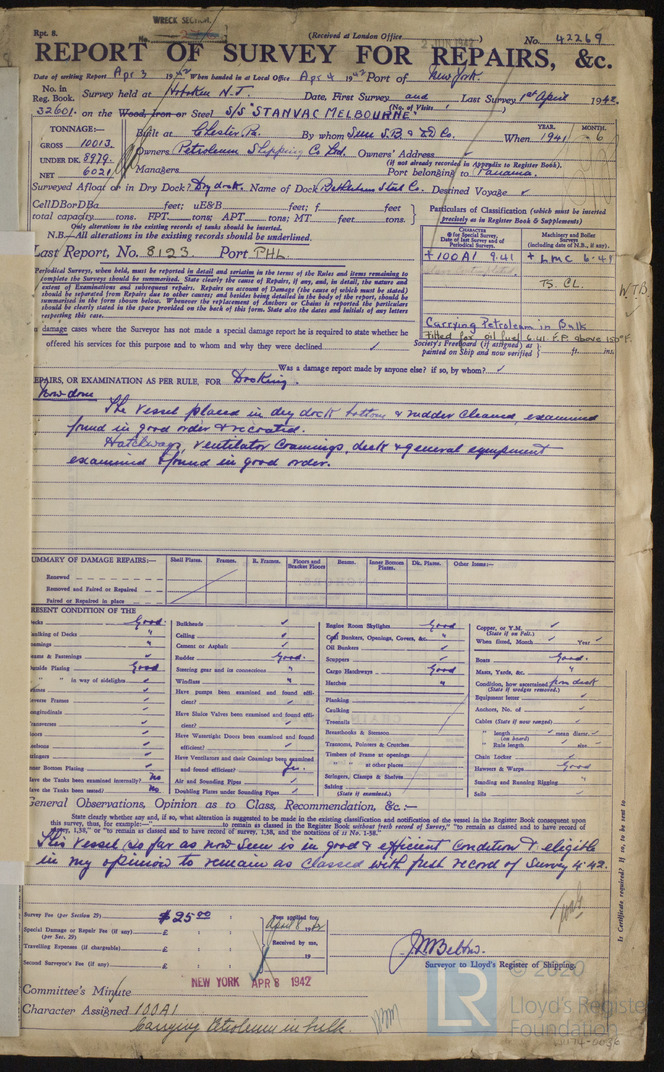 Rpt. 8.
WRECK SECTION.
(Received at London Office
No. 42269
REPORT OF SURVEY FOR REPAIRS, &c.
Date of writing Report Apr 3 1942 When handed in at Local Office Apr 4 1942 Port of New York.
No. in Reg. Book.
Survey held at Hoboken N.J. Date, First Survey and Last Survey 1st April 1942.
(No. of Visits
32601. on the Wood, Iron or Steel S/S "STANVAC MELBOURNE"
TONNAGE:—
GROSS 10013.
UNDER DK. 8979.
NET 6021
Built at Chester, Pa. By whom Sun S.B. & DD Co. When 1941 6
YEAR. MONTH.
Owners Petroleum Shipping Co Ltd. Owners' Address
(if not already recorded in Appendix to Register Book).
Managers Port belonging to Panama.
Surveyed Afloat or in Dry Dock? Dry dock. Name of Dock Bethlehem Steel Co. Destined Voyage
CellDBorDBa feet; uE&B feet; f feet
total capacity tons. FPT tons; APT tons; MT feet tons.
Only alterations in the existing records of tanks should be inserted.
N.B.—All alterations in the existing records should be underlined.
Particulars of Classification (which must be inserted precisely as in Register Book & Supplements)
Last Report, No. 8123. Port PHL.
CHARACTER
for Special Survey, Date of last Survey and of Periodical Surveys.
Machinery and Boiler Surveys (including date of N.B., if any).
+100A1 9.41
+ LMC 6.41
B. CL.
WTB
Carrying Petroleum in Bulk
Fitted for oil fuel 6.41 F.P. above 150°F.
Society's Freeboard (if assigned) as painted on Ship and now verified ft. ins.
Periodical Surveys, when held, must be reported in detail and seriatim in the terms of the Rules and items remaining to complete the Surveys should be summarised.
damage cases where the Surveyor has not made a special damage report he is required to state whether he
offered his services for this purpose and to whom and why they were declined
Was a damage report made by anyone else? if so, by whom?
EPAIRS, OR EXAMINATION AS PER RULE, FOR Docking.
Now done
The vessel placed in dry dock bottom & rudder cleaned, examined
found in good order & recoated.
Hatchways, ventilator coamings, deck & general equipment
examined & found in good order.
SUMMARY OF DAMAGE REPAIRS:—
Shell Plates. Frames. R. Frames. Floors and Bracket Floors Beams. Inner Bottom Plates. Dk. Plates. Other Items:—
Renewed
Removed and Faired or Repaired
Faired or Repaired in place
RESENT CONDITION OF THE
ecks Good.
aulking of Decks "
eams & Fastenings
Good
" in way of sidelights
nner Bottom Plating
ave the Tanks been examined internally? No
ave the Tanks been tested? No.
Bulkheads
Ceiling
Cement or Asphalt
Rudder Good.
Steering gear and its connections "
Windlass "
Have pumps been examined and found efficient?
Have Sluice Valves been examined and found efficient?
Have Watertight Doors been examined and found efficient?
Have Ventilators and their Coamings been examined and found efficient? Yes.
Air and Sounding Pipes
Doubling Plates under Sounding Pipes
Engine Room Skylights Good
Coal Bunkers, Openings, Covers, &c. "
Oil Bunkers
Scuppers
Cargo Hatchways Good
Hatches "
Planking
Caulking
Treenails
Breasthooks & Stemson
Transoms, Pointers & Crutches
Timbers of Frame at openings
" " at other places
Stringers, Clamps & Shelves
Salting
(State if examined.)
Copper, or Y.M.
(State if on Felt.)
When fitted, Month Year
Boats Good.
Masts, Yards, &c.
Condition, how ascertained from deck
(State if wedges removed.)
Equipment letter
Anchors, No. of
Cables (State if now ranged)
" length mean diamr.
(on board)
" Rule length size
Chain Locker
Hawsers & Warps Good
Standing and Running Rigging "
Sails
General Observations, Opinion as to Class, Recommendation, &c.:—
State clearly whether any, and if so, what alteration is suggested to be made in the existing classification and notification of the vessel in the Register Book consequent upon
this survey, thus, for example:—" to remain as classed in the Register Book without fresh record of Survey," "to remain as classed and to have record of
survey, 1,38," or "to remain as classed and to have record of survey, 1,38, and the notations of SS No. 1-38".
This Vessel, so far as now seen is in good & efficient condition & eligible
in my opinion to remain as classed with fresh record of Survey 4.42.
Is Certificate required? If so, to be sent to
Survey Fee (per Section 29) $25.00
Special Damage or Repair Fee (if any) (per Sec. 29) £
Travelling Expenses (if chargeable) £
Second Surveyor's Fee (if any) £
Fees applied for, April 8 1942
Received by me, 19
J.M. Belton.
Surveyor to Lloyd's Register of Shipping.
NEW YORK APR 8 1942
Committee's Minute
Character Assigned 100A1
Carrying Petroleum in bulk.
LR
© 2020
Lloyd's Register
Foundation